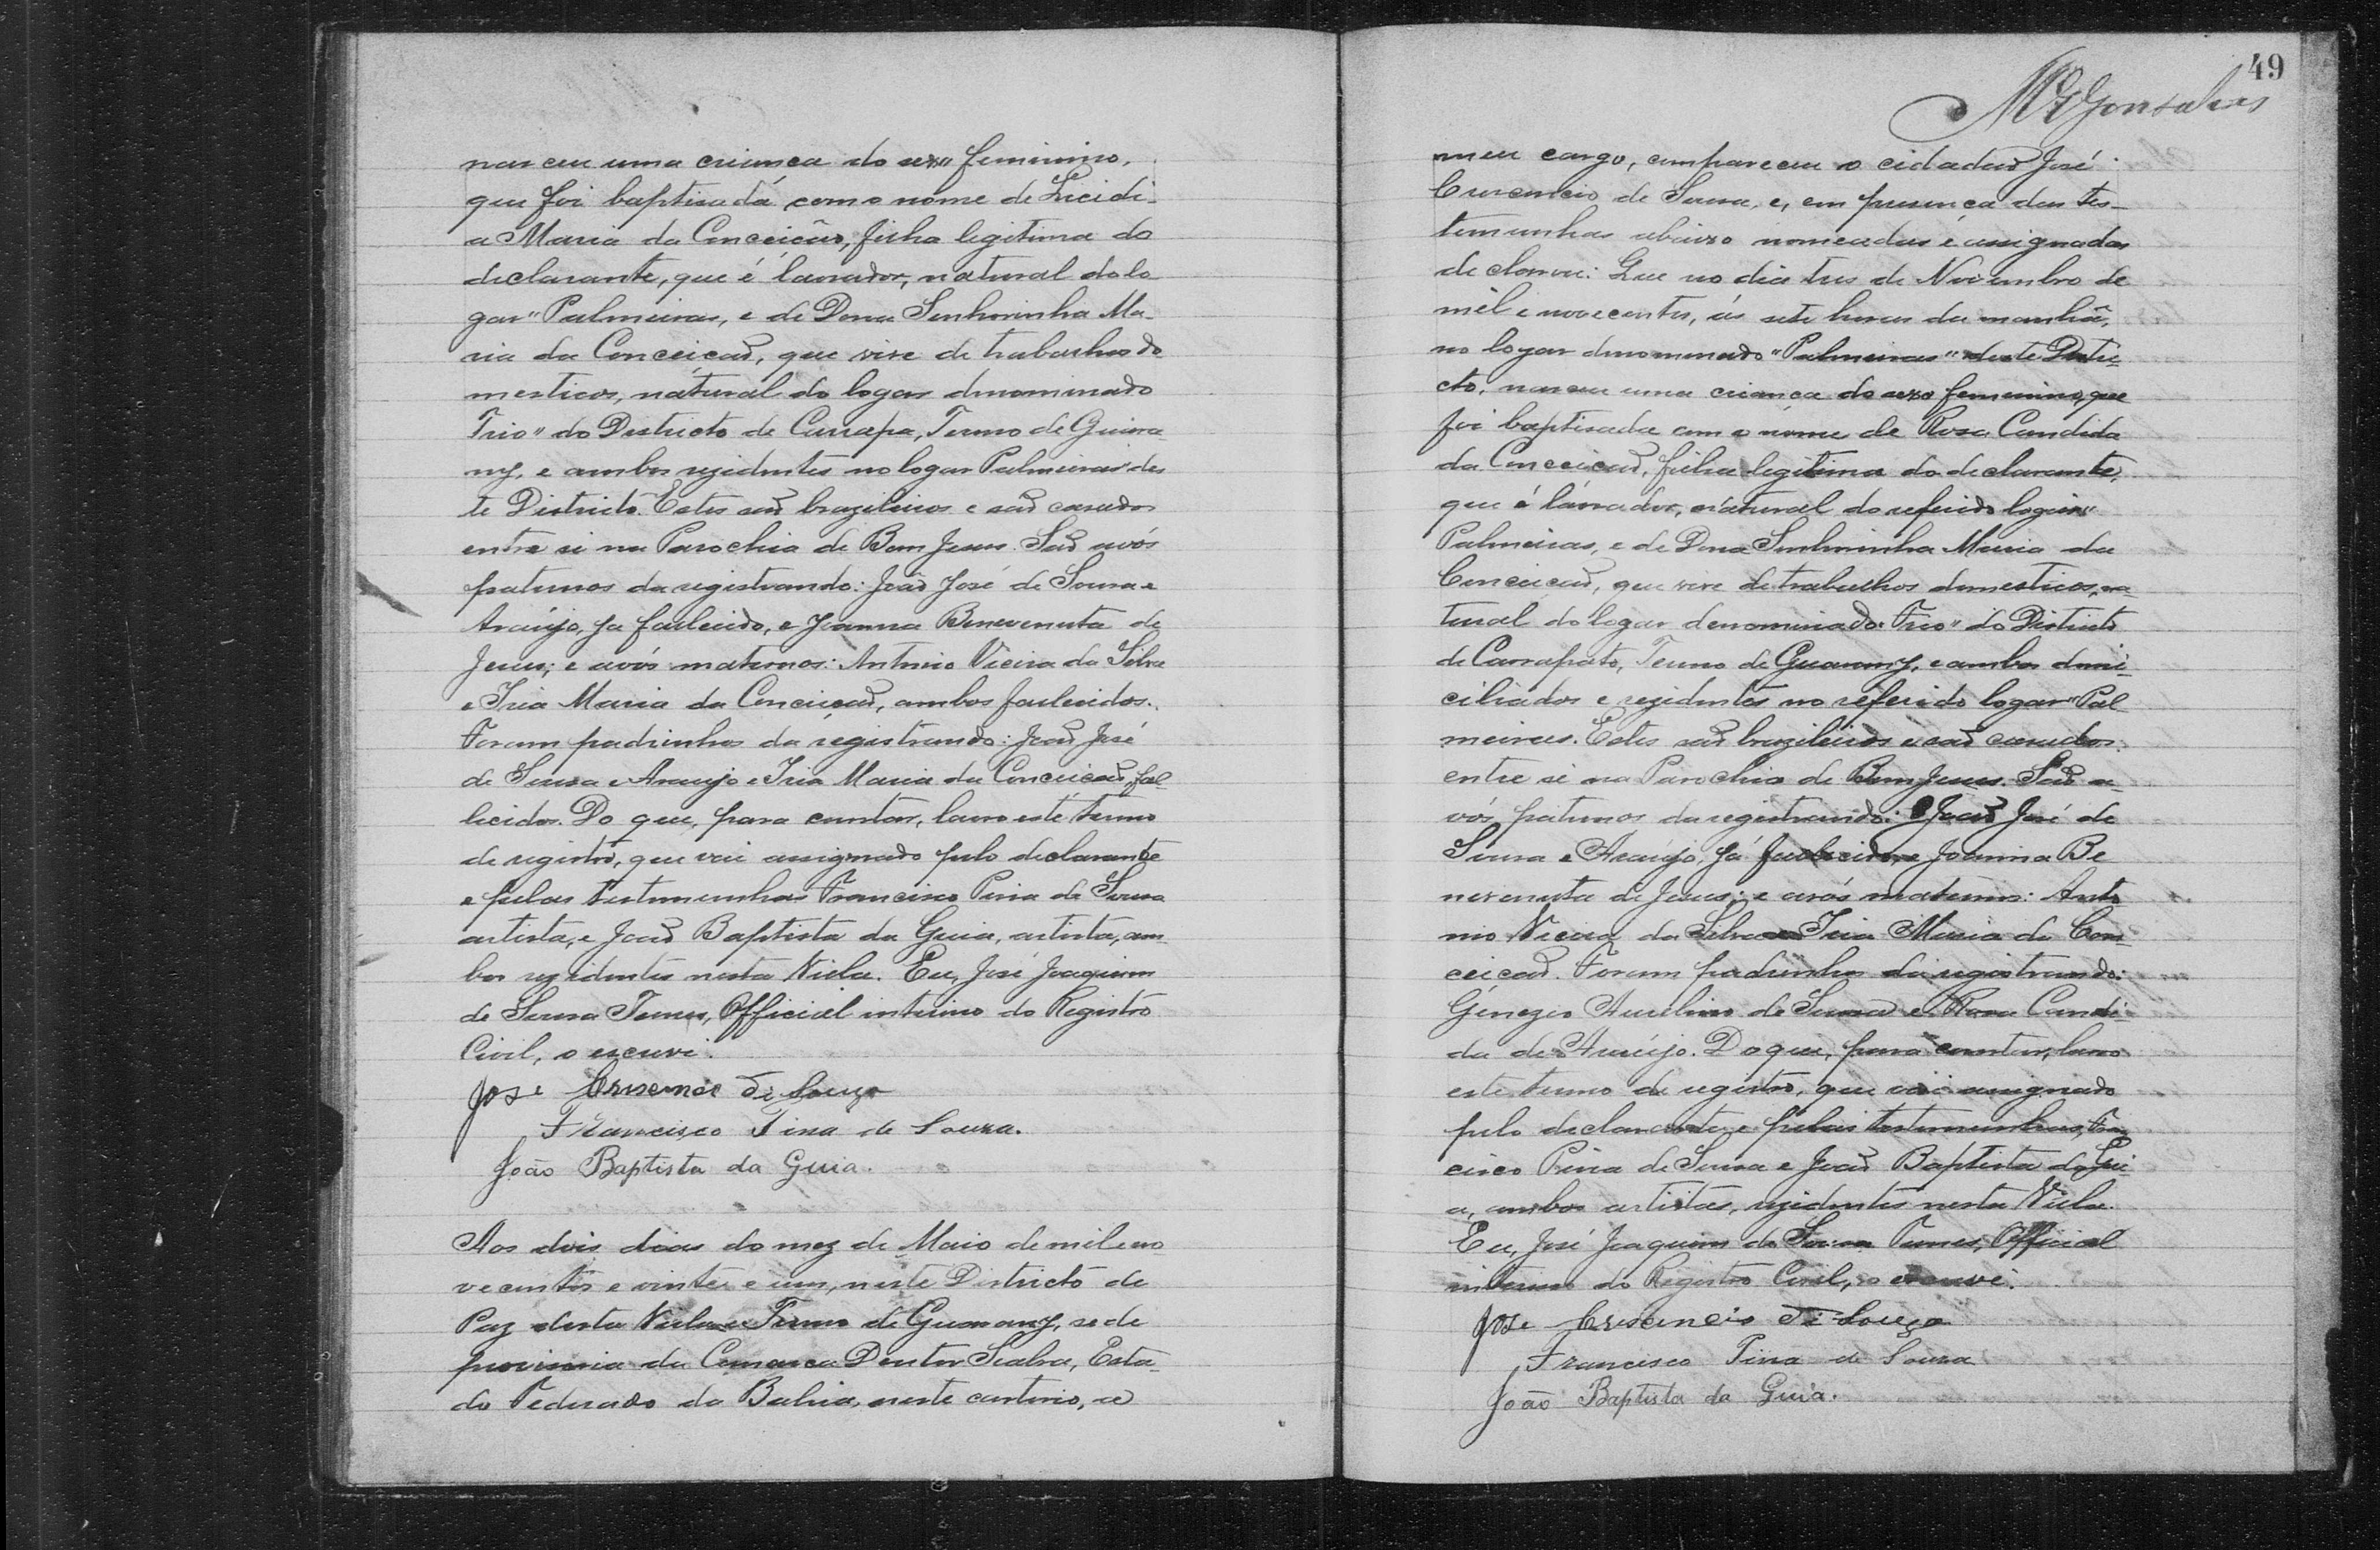 nasceu uma criança do sexo feminino,
que foi baptisada com o nome de Licidi-
a Maria da Conceição, filha legitima do
declarante, que é lavrador, natural do lo
gar "Palmeiras, e de Dona Senhorinha Ma-
ria da Conceição, que vive de trabalhos do
mesticos, natural do logar denominado
Frio" do Districto de Carrapa, Termo de Guara
ny, e ambos rezidentes no logar Palmeiras des
te Districto. Estes são brazileiros e são casados
entre si na Parochia de Bom Jesus. São avós
paternos da registrando: João José de Souza e
Araújo, ja fallecido, e Joanna Benevenuta de
Jesus; e avós maternos: Antonio Vieira da Silva
e Iria Maria da Conceição, ambos fallecidos.
Foram padrinhos da registrando: João José
de Souza e Araujo e Iria Maria da Conceição, fal-
lecidos. Do que, para constar, lavro este termo
de registro, que vai assignado pelo declarante
e pelas testemunhas Francisco Pina de Souza
artista, e João Baptista da Guia, artista, am-
bos rezidentes nesta Villa. Eu, José Joaquim
de Souza Tunes, Official interino do Registro
Civil, o escrevi.
Jose Crescencio di Souza
Francisco Pina de Souza.
João Baptista da Guia.
Aos dois dias do mez de Maio de mil e no
vecentos e vinte e um, neste Districto de
Paz desta Villa e Termo de Guarany, sede
provisoria da Comarca Doutor Seabra, Esta-
do Federado da Bahia, neste cartorio, a
49
Gonsalves
meu cargo, compareceu o cidadão José
Crescencio de Souza, e, em presença das tes-
temunhas abaixo nomeadas e assignadas
declarou: Que no dia tres de Novembro de
mil e novecentos, ás sete horas da manhã,
no logar denominado "Palmeiras" deste Distri-
cto, nasceu uma criança do sexo feminino, que
foi baptisada com o nome de Rosa Candida
da Conceição, filha legitima do declarante,
que é lavrador, natural do referido logar"
Palmeiras, e de Dona Senhorinha Maria da
Conceição, que vive de trabalhos domesticos, na
tural do logar denominado "Frio" do Districto
de Carrapato, Termo de Guarany, e ambos domi-
ciliados e rezidentes no referido logar "Pal
meiras. Estes são brazileiros e são casados
entre si na Parochia de Bom Jesus. São a-
vós paternos da registrando: João José de
Souza e Araújo, já fallecido, e Joanna Be
nevenuta de Jesus; e avós maternos: Anto
nio Vieira da Silva e Iria Maria da Con-
ceição. Foram padrinhos da registrando:
Génezio Aurelino de Souza e Rosa Candi-
da de Araújo. Do que, para constar, lavro
este termo de registro, que vai assignado
pelo declarante e pelas testemunhas, Fran
cisco Pina de Souza e João Baptista da Gui
a, ambos artistas, rezidentes nesta Villa.
Eu, José Joaquim de Souza Tunes, Official
interino do Registro Civil, o escrevi.
Jose Crescencio di Souza
Francisco Pina de Souza
João Baptista da Guia.